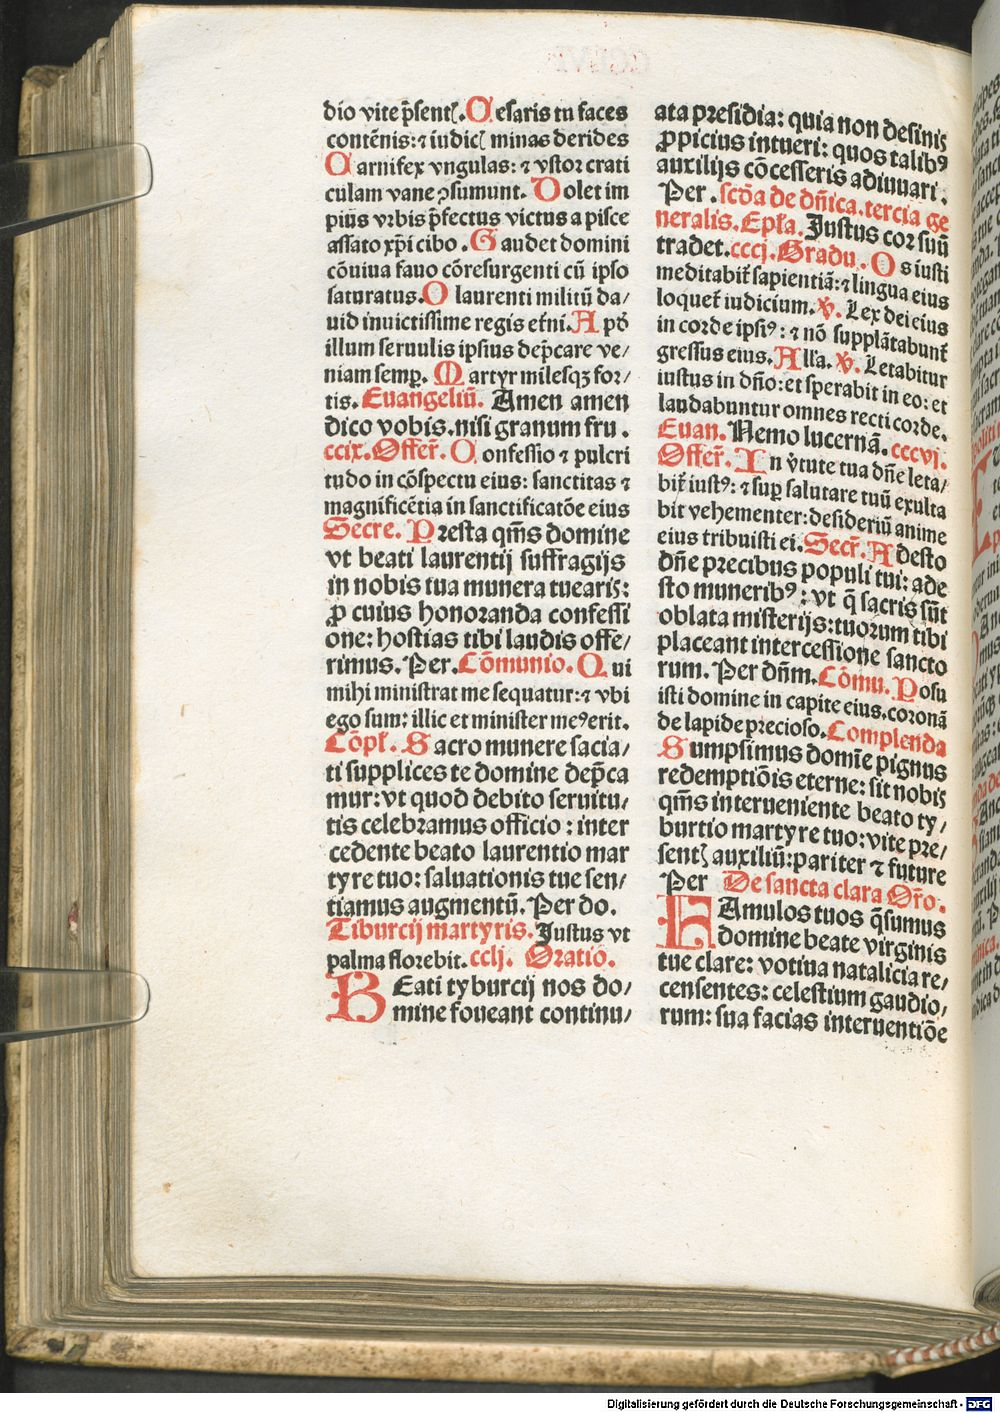 dio vite p̄sentꝭ. Cesaris tu faces
contēnis: ⁊ iudicꝭ minas derides
Carnifex vngulas: ⁊ vstor crati
culam vane ꝯsumunt. Dolet im
pius vrbis p̄fectus victus a pisce
assato xp̄i cibo. Gaudet domini
cōuiua fauo cōresurgenti cū ipso
saturatus. O laurenti militū da/
uid inuictissime regis et̄ni. Apd̄
illum seruulis ipsius dep̄care ve/
niam semꝑ. Martyr milesqꝫ for/
tis. Euangeliū. Amen amen
dico vobis. nisi granum fru.
ccix. Offer̄. Confessio ⁊ pulcri
tudo in cōspectu eius: sanctitas ⁊
magnificētia in sanctificatōe eius
Secre. Presta qm̄s domine
vt beati laurentij suffragijs
in nobis tua munera tuearis:
ꝓ cuius honoranda confessi
one: hostias tibi laudis offe/
rimus. Per. Cōmunio. Qui
mihi ministrat me sequatur: ⁊ vbi
ego sum: illic et minister meꝰ erit.
Cōpl̄. Sacro munere sacia/
ti supplices te domine dep̄ca
mur: vt quod debito seruitu/
tis celebramus officio: inter
cedente beato laurentio mar
tyre tuo: saluationis tue sen/
tiamus augmentū. Per do.
Tiburcij martyris. Justus vt
palma florebit. cclj. Oratio.
BEati tyburcij nos do/
mine foueant continu/
ata presidia: quia non desinis
ꝓpicius intueri: quos talibꝰ
auxilijs cōcesseris adiuuari.
Per. scd̄a de dn̄ica. tercia ge
neralis. Epl̄a. Justus cor suū
tradet. cccj. Gradu. Os iusti
meditabit̄ sapientiā: ⁊ lingua eius
loquet̄ iudicium. ℣. Lex dei eius
in corde ipsiꝰ: ⁊ nō supplātabunt̄
gressus eius. All̄a. ℣. Letabitur
iustus in dn̄o: et sperabit in eo: et
laudabuntur omnes recti corde.
Euan. Nemo lucernā. cccvj.
Offer̄. In v̄tute tua dn̄e leta/
bit̄ iustꝰ: ⁊ suꝑ salutare tuū exulta
bit vehementer: desideriū anime
eius tribuisti ei. Secr̄. Adesto
dn̄e precibus populi tui: ade
sto muneribꝰ: vt q̄ sacris sūt
oblata misterijs: tuorum tibi
placeant intercessione sancto
rum. Per dn̄m. Cōmu. Posu
isti domine in capite eius. coronā
de lapide precioso. Complenda
Sumpsimus domīe pignus
redemptiōis eterne: sit nobis
qm̄s interueniente beato ty/
burtio martyre tuo: vite pre/
sentꝭ auxiliū: pariter ⁊ future
Per De sancta clara Or̄o.
FAmulos tuos q̄sumus
domine beate virginis
tue clare: votiua natalicia re/
censentes: celestium gaudio/
rum: sua facias interuentiōe
Digitalisierung gefördert durch die Deutsche Forschungsgemeinschaft - DFG